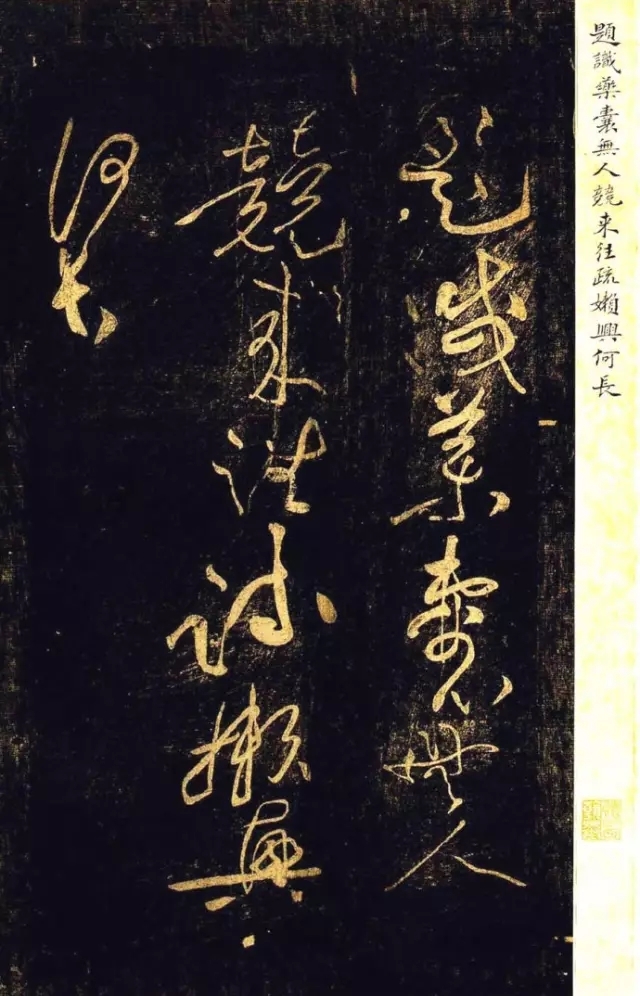 題識藥囊無人競来往疏嬾興何長
題識藥囊無人
競来往疏懶興
何長